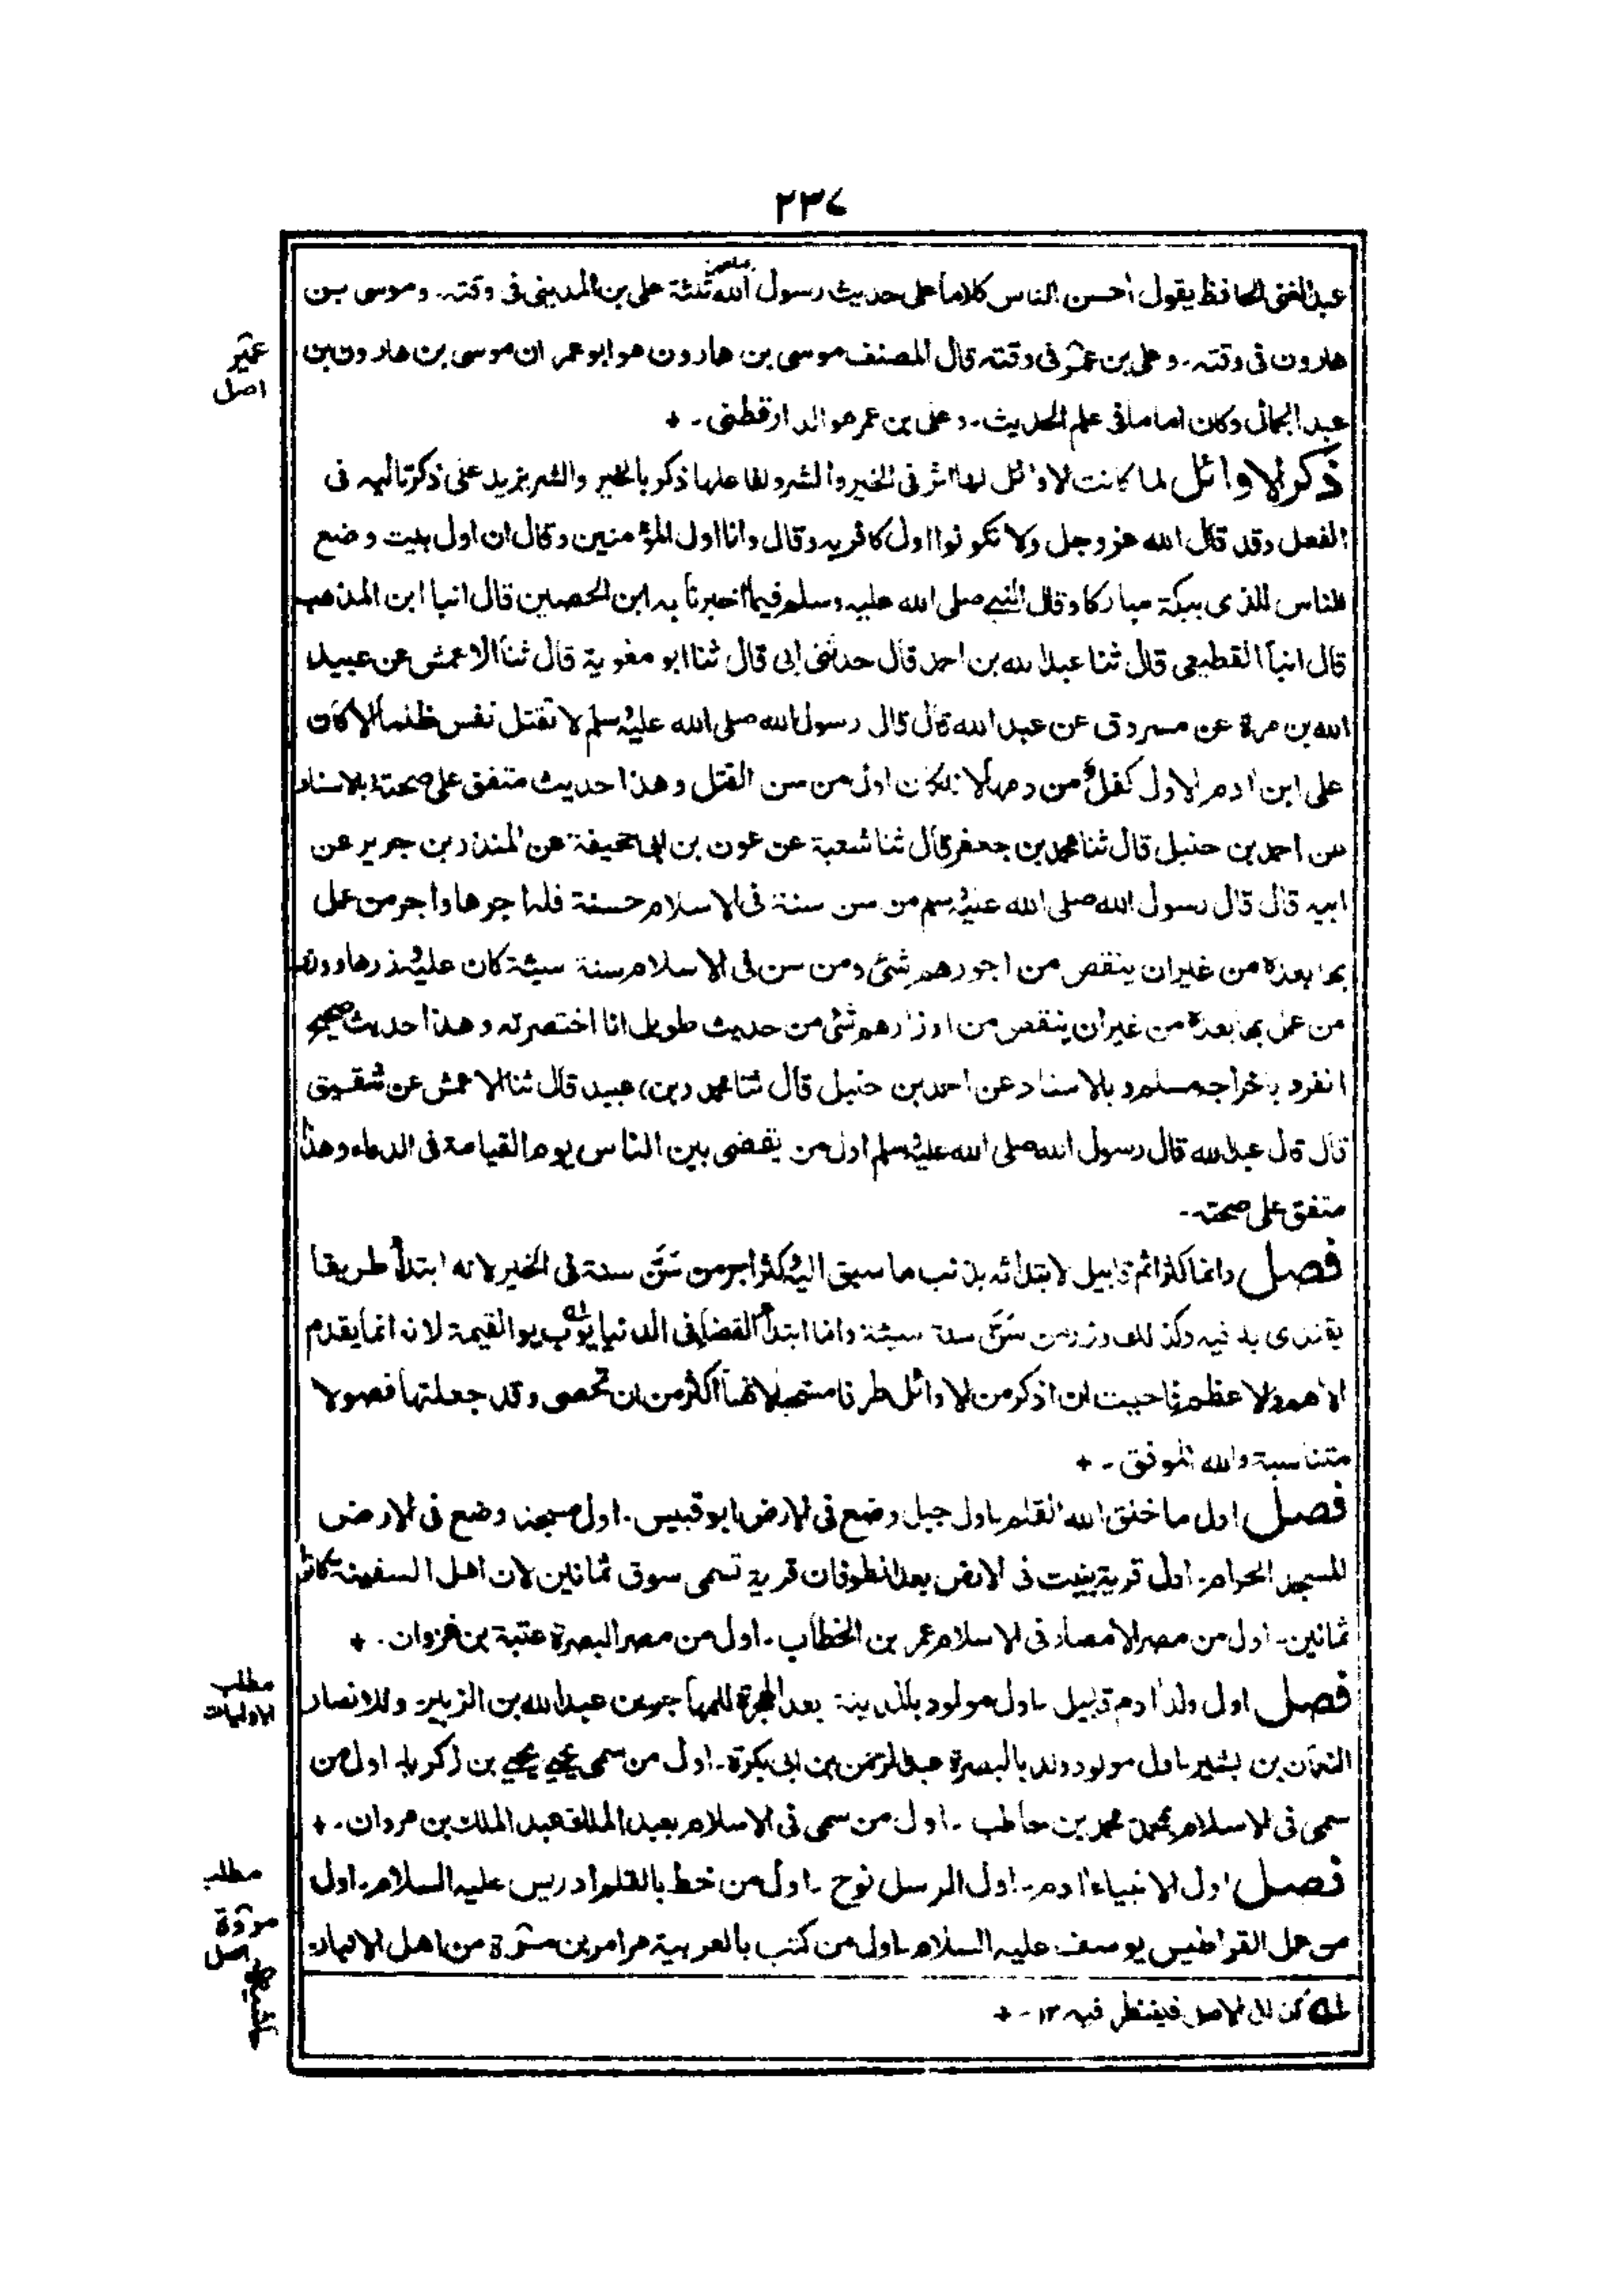 ٢٣٧
عبد الغنى الحافظ يقول أحسن الناس كلاماً على حديث رسول الله صلعم ثلثة على بن المدينى فى وقته۔ وموسى بن
هارون فى وقته۔ وعلى بن عمر فى وقته قال المصنف موسى بن هارون هو ابو عمران موسى بن هارون بن
عمير
اصل
عبد الجمال وكان اماما فى علم الحديث۔ وعلى بن عمر هو الدارقطنى۔ +
ذكر الاوائل لما كانت الاوائل لها اثر فى الخير والشر وفاعلها ذكر بالخير والشر يزيد على ذكر تاليه فى
الفعل وقد قال الله عز وجل ولا تكونوا اول كافر به وقال وانا اول المؤمنين وقال ان اول بيت وضع
للناس للذى ببكة مباركا وقال النبى صلى الله عليه وسلم فيما اخبرنا به ابن الحصين قال انبا ابن المذهب
قال انبا القطيعى قال ثنا عبد الله بن احمد قال حدثنى ابى قال ثنا ابو معوية قال ثنا الاعمش عن عبيد
الله بن مرة عن مسروق عن عبد الله قال قال رسول الله صلى الله عليه وسلم لا تقتل نفس ظلما الا كان
على ابن ادم الاول كفل من دمها لانه كان اول من سن القتل وهذا حديث متفق على صحته بالاسناد
عن احمد بن حنبل قال ثنا محمد بن جعفر قال ثنا شعبة عن عون بن ابى جحيفة عن المنذر بن جرير عن
ابيه قال قال رسول الله صلى الله عليه وسلم من سن سنة فى الاسلام حسنة فله اجرها واجر من عمل
بها بعده من غير ان ينقص من اجورهم شئ ومن سن فى الاسلام سنة سيئة كان عليه وزرها ووزر
من عمل بها بعده من غير ان ينقص من اوزارهم شئ من حديث طويل انا اختصرته وهذا حديث صحيح
انفرد باخراجه مسلم وبالاسناد عن احمد بن حنبل قال ثنا محمد (بن) عبيد قال ثنا الاعمش عن شقيق
قال قال عبد الله قال رسول الله صلى الله عليه وسلم اول من يقضى بين الناس يوم القيامة فى الدماء وهذا
متفق على صحته۔
فصل وانما كثر اثم قابيل لابتدائه بذنب ما سبق اليه وكثر اجر من سَنَّ سنة فى الخير لانه ابتدأ طريقا
يقتدى به فيه وكذلك وزر من سَنَّ سنة سيئة وانما ابتدأ القضا فى الدنيا يوب يوم القيمة لانه انما يقدم
الاهم والاعظم فاحببت ان اذكر من الاوائل طرفا لانها اكثر من ان تحصى وقد جعلتها فصولا
متناسبة والله الموفق۔ +
فصل اول ما خلق الله القلم۔ اول جبل وضع فى الارض ابو قبيس۔ اول مسجد وضع فى الارض
المسجد الحرام۔ اول قرية بنيت فى الارض بعد الطوفان قرية تسمى سوق ثمانين لان اهل السفينة كانوا
ثمانين۔ اول من مصر الامصار فى الاسلام عمر بن الخطاب۔ اول من مصر البصرة عتبة بن غزوان۔ +
مطلب
الاوليات
فصل اول ولد ادم قابيل۔ اول مولود بالمدينة بعد الهجرة للمهاجرين عبد الله بن الزبير وللانصار
النعمان بن بشير۔ اول مولود ولد بالبصرة عبد الرحمن بن ابى بكرة۔ اول من سمى يحيى يحيى بن زكريا۔ اول من
سمى فى الاسلام محمدا محمد بن حاطب۔ اول من سمى فى الاسلام بعبد الملك عبد الملك بن مروان۔ +
مطلب
فصل اول الانبياء ادم۔ اول الرسل نوح۔ اول من خط بالقلم ادريس عليه السلام۔ اول
من عمل القراطيس يوسف عليه السلام۔ اول من كتب بالعربية مرامر بن مرة من اهل الانبار۔
مروة
اصل
له كذا فى الاصل فينظر فيه ١٢۔ +